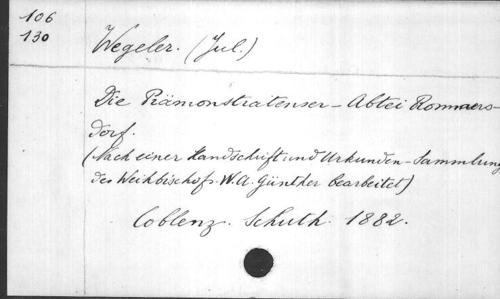 106
130
Wegeler. (Jul.)
Die Prämonstratenser-Abtei Rommers-
dorf.
(Nach einer Handschrift und Urkunden-Sammlung
des Weihbischofs W. A. Günther bearbeitet)
Coblenz. Schuth. 1882.